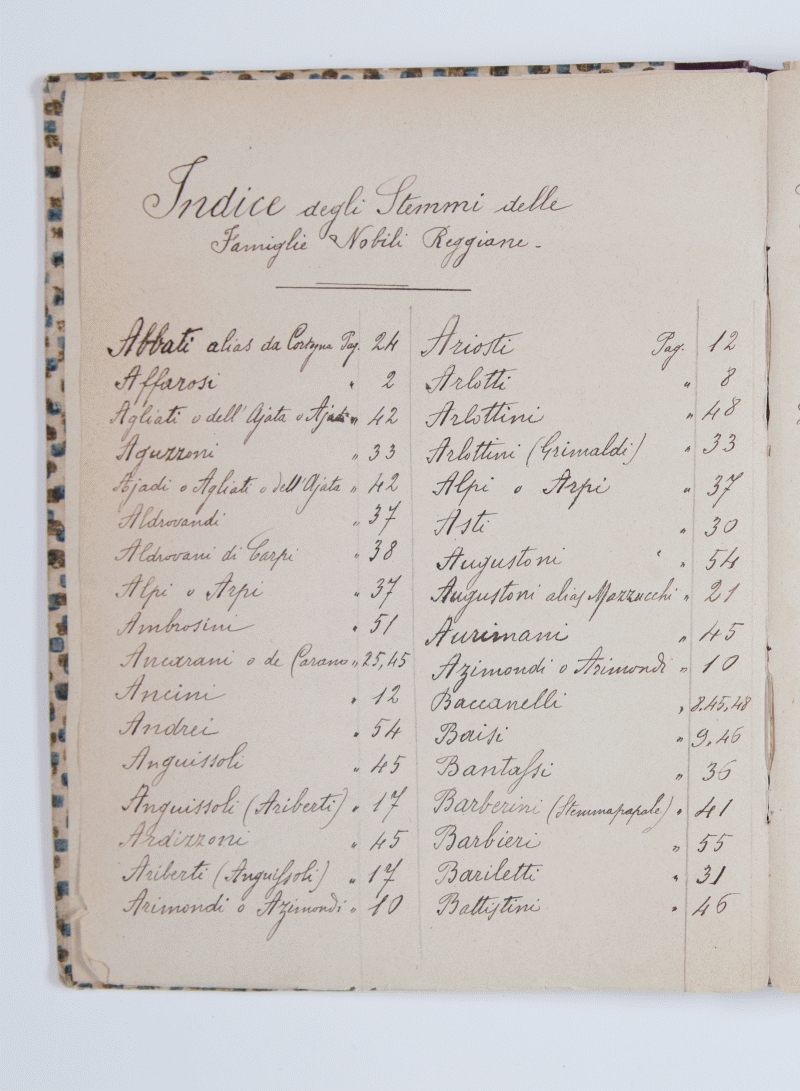 Indice degli Stemmi delle
Famiglie Nobili Reggiane.
Abbati alias da Corteyna Pag. 24
Affarosi " 2
Agliati o dell' Ajata o Ajadi " 42
Aguzzoni " 33
Ajadi o Agliati o dell'Ajata " 42
Aldrovandi " 37
Aldrovani di Carpi " 38
Alpi o Arpi " 37
Ambrosini " 51
o de Carano " 25,45
Ancini " 12
Andrei " 54
Anguissoli " 45
Anguissoli (Ariberti) " 17
Ardizzoni " 45
Ariberti (Anguissoli) " 17
Arimondi o Azimondi " 10
Ariosti Pag. 12
Arlotti " 8
Arlottini " 48
Arlottini (Grimaldi) " 33
Alpi o Arpi " 37
Asti " 30
Augustoni " " 54
Augustoni alias Mazzucchi " 21
Aurimani " 45
Azimondi o Arimondi " 10
Baccanelli " 8,45,48
Baisi " 9,46
Bantassi " 36
Barberini (Stemma papale) " 41
Barbieri " 55
Bariletti " 31
Battistini " 46